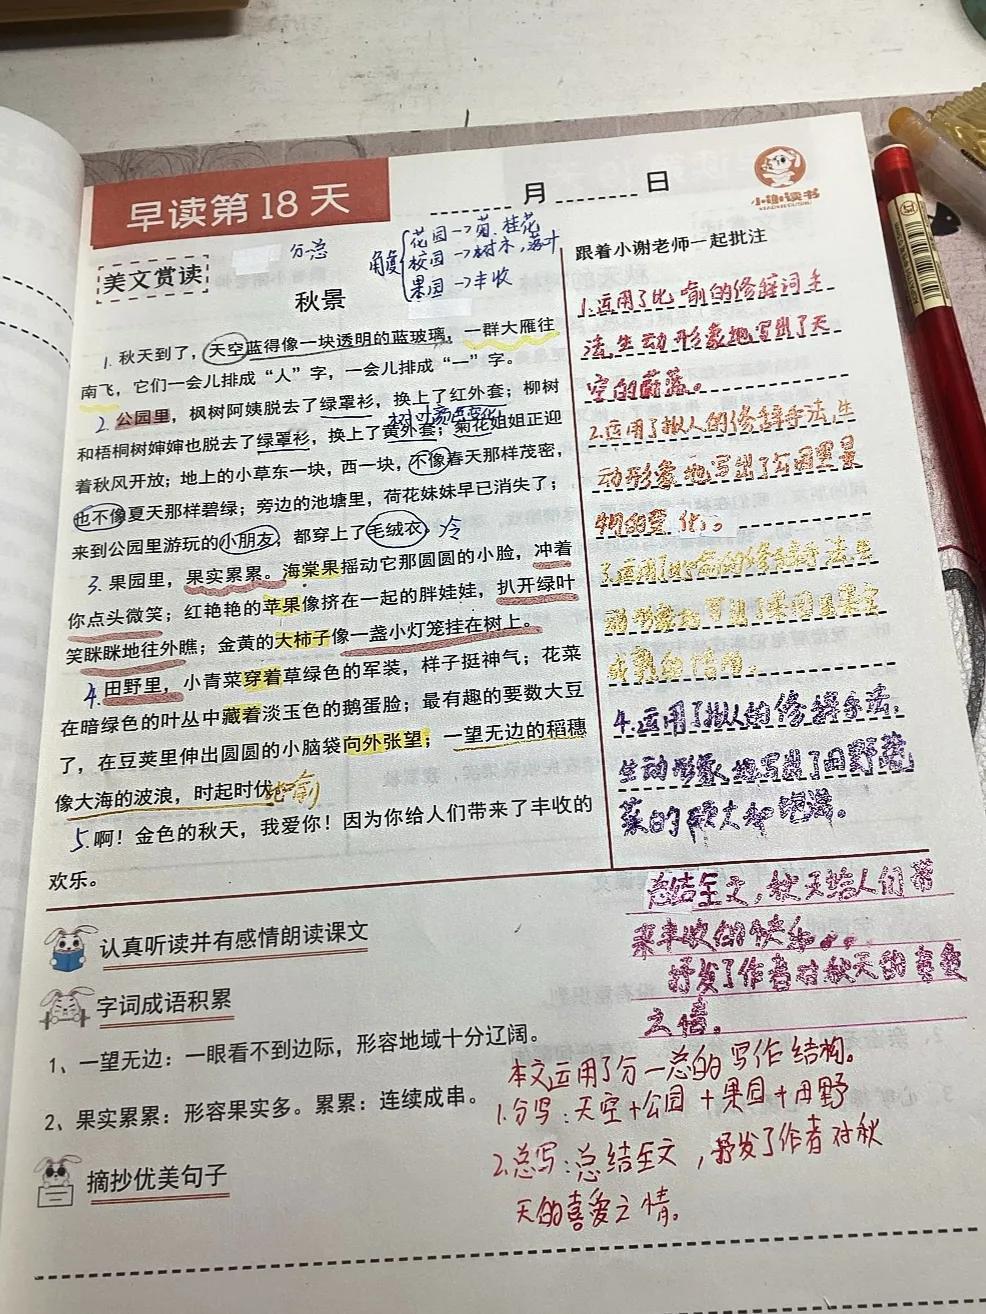 早读第 18 天
月 日
小谢读书
美文赏读
分总
角度
花园→菊、桂花
校园→树木,落叶
果园→丰收
秋景
1. 秋天到了,天空蓝得像一块透明的蓝玻璃,一群大雁往
南飞,它们一会儿排成“人”字,一会儿排成“一”字。
2. 公园里,枫树阿姨脱去了绿罩衫,换上了红外套;柳树
和梧桐树婶婶也脱去了绿罩衫,换上了黄外套;菊花姐姐正迎
着秋风开放;地上的小草东一块,西一块,不像春天那样茂密,
也不像夏天那样碧绿;旁边的池塘里,荷花妹妹早已消失了;
来到公园里游玩的小朋友,都穿上了毛绒衣。冷
3. 果园里,果实累累。海棠果摇动它那圆圆的小脸,冲着
你点头微笑;红艳艳的苹果像挤在一起的胖娃娃,扒开绿叶
笑眯眯地往外瞧;金黄的大柿子像一盏小灯笼挂在树上。
4. 田野里,小青菜穿着草绿色的军装,样子挺神气;花菜
在暗绿色的叶丛中藏着淡玉色的鹅蛋脸;最有趣的要数大豆
了,在豆荚里伸出圆圆的小脑袋向外张望;一望无边的稻穗
像大海的波浪,时起时伏比喻
5. 啊!金色的秋天,我爱你!因为你给人们带来了丰收的
欢乐。
跟着小谢老师一起批注
1.运用了比喻的修辞词手
法,生动形象地写出了天
空的蔚蓝。
2.运用了拟人的修辞手法,生
动形象地写出了公园里景
物的变化。
3.运用了比喻的修辞手法,生
动形象地写出了果园里果实
成熟的情景。
4.运用了拟人的修辞手法,
生动形象地写出了田野蔬
菜的硕大和饱满。
总结全文,秋天给人们带
来丰收的快乐。
抒发了作者对秋天的喜爱
之情。
本文运用了分一总的写作结构。
1.分写:天空+公园+果园+田野
2.总写:总结全文,抒发了作者对秋
天的喜爱之情。
认真听读并有感情朗读课文
字词成语积累
1、一望无边:一眼看不到边际,形容地域十分辽阔。
2、果实累累:形容果实多。累累:连续成串。
摘抄优美句子